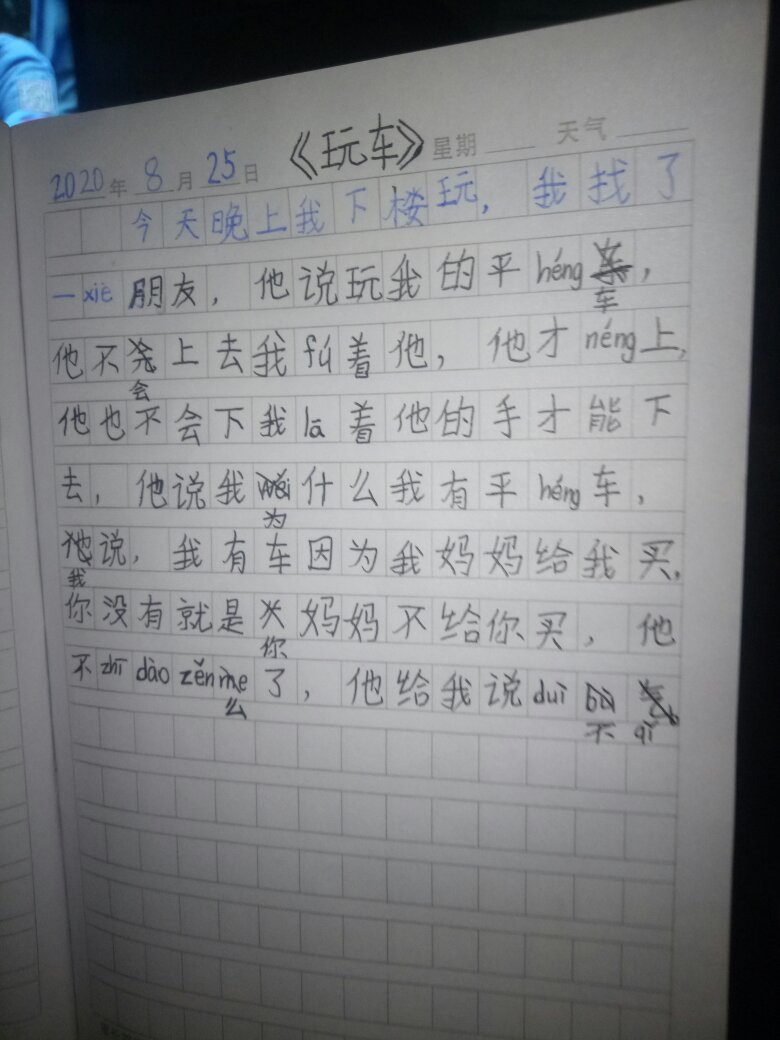 2020年8月25日 《玩车》 星期 天气
今天晚上我下楼玩，我找了
一xiē朋友，他说玩我的平héng车，
他不会上去我fú着他，他才néng上，
他也不会下我lā着他的手才能下
去，他说我为什么我有平héng车，
我说，我有车因为我妈妈给我买，
你没有就是你妈妈不给你买，他
不zhī dào zěn么了，他给我说duì不qǐ